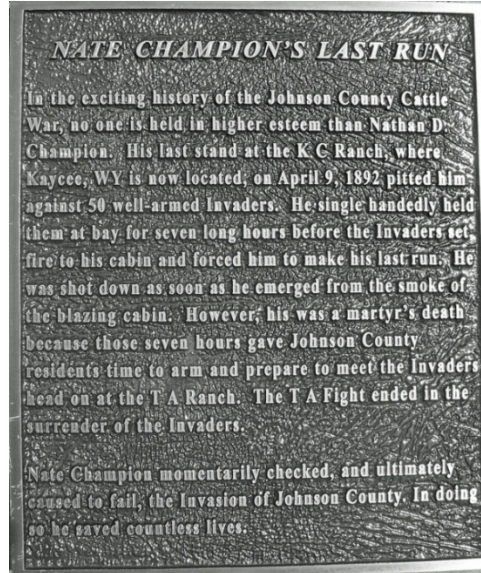 NATE CHAMPION'S LAST RUN
In the exciting history of the Johnson County Cattle
War, no one is held in higher esteem than Nathan D.
Champion. His last stand at the K C Ranch, where
Kaycee, WY is now located, on April 9, 1892 pitted him
against 50 well-armed Invaders. He single handedly held
them at bay for seven long hours before the Invaders set
fire to his cabin and forced him to make his last run. He
was shot down as soon as he emerged from the smoke of
the blazing cabin. However, his was a martyr's death
because those seven hours gave Johnson County
residents time to arm and prepare to meet the Invaders
head on at the T A Ranch. The T A Fight ended in the
surrender of the Invaders.
Nate Champion momentarily checked, and ultimately
caused to fail, the Invasion of Johnson County. In doing
so he saved countless lives.